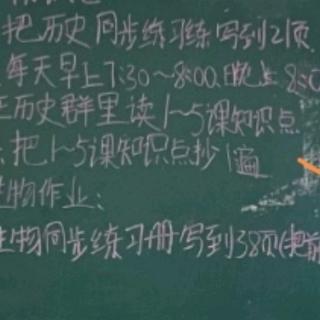 把历史同步练习练写到21页
每天早上7:30～8:00.晚上8:0
在历史群里读1～5课知识点
把1～5课知识点抄1遍
生物作业:
生物同步练习册写到38页(把前